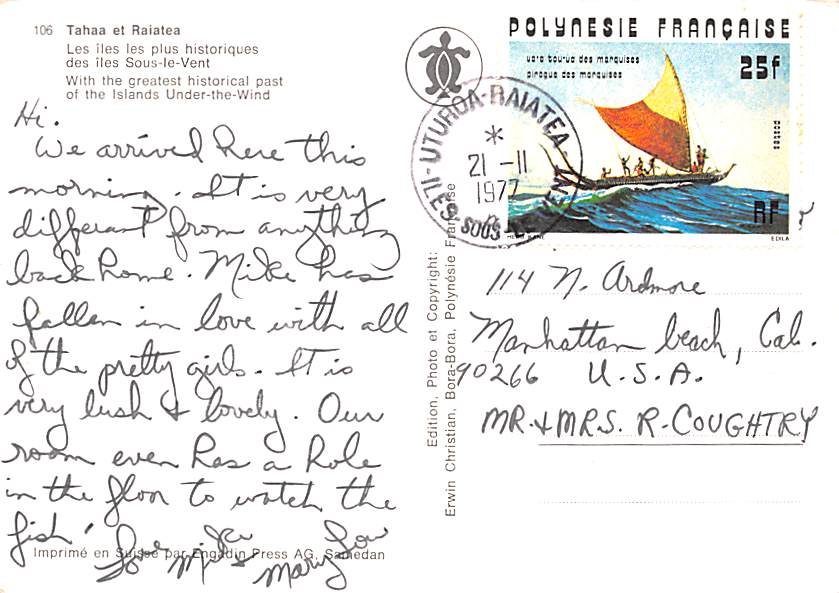 106 Tahaa et Raiatea
Les îles les plus historiques
des îles Sous-le-Vent
With the greatest historical past
of the Islands Under-the-Wind
Hi.
We arrived here this
morning. It is very
different from anything
back home. Mike has
fallen in love with all
of the pretty girls. It is
very lush & lovely. Our
room even has a hole
in the floor to watch the
fish!
Love Mike &
Mary Lou
Imprimé en Suisse par Engadin Press AG, Samedan
Edition, Photo et Copyright:
Erwin Christian, Bora-Bora, Polynésie Française
POLYNESIE FRANÇAISE
vara tou-ua des marquises
pirogue des marquises
25f
postes
RF
EDILA
UTUROA-RAIATEA
*
21 -11
1977
ILES SOUS LE VENT
114 N. Ardmore
Manhattan beach, Cal.
90266 U.S.A.
MR. & MRS. R. COUGHTRY